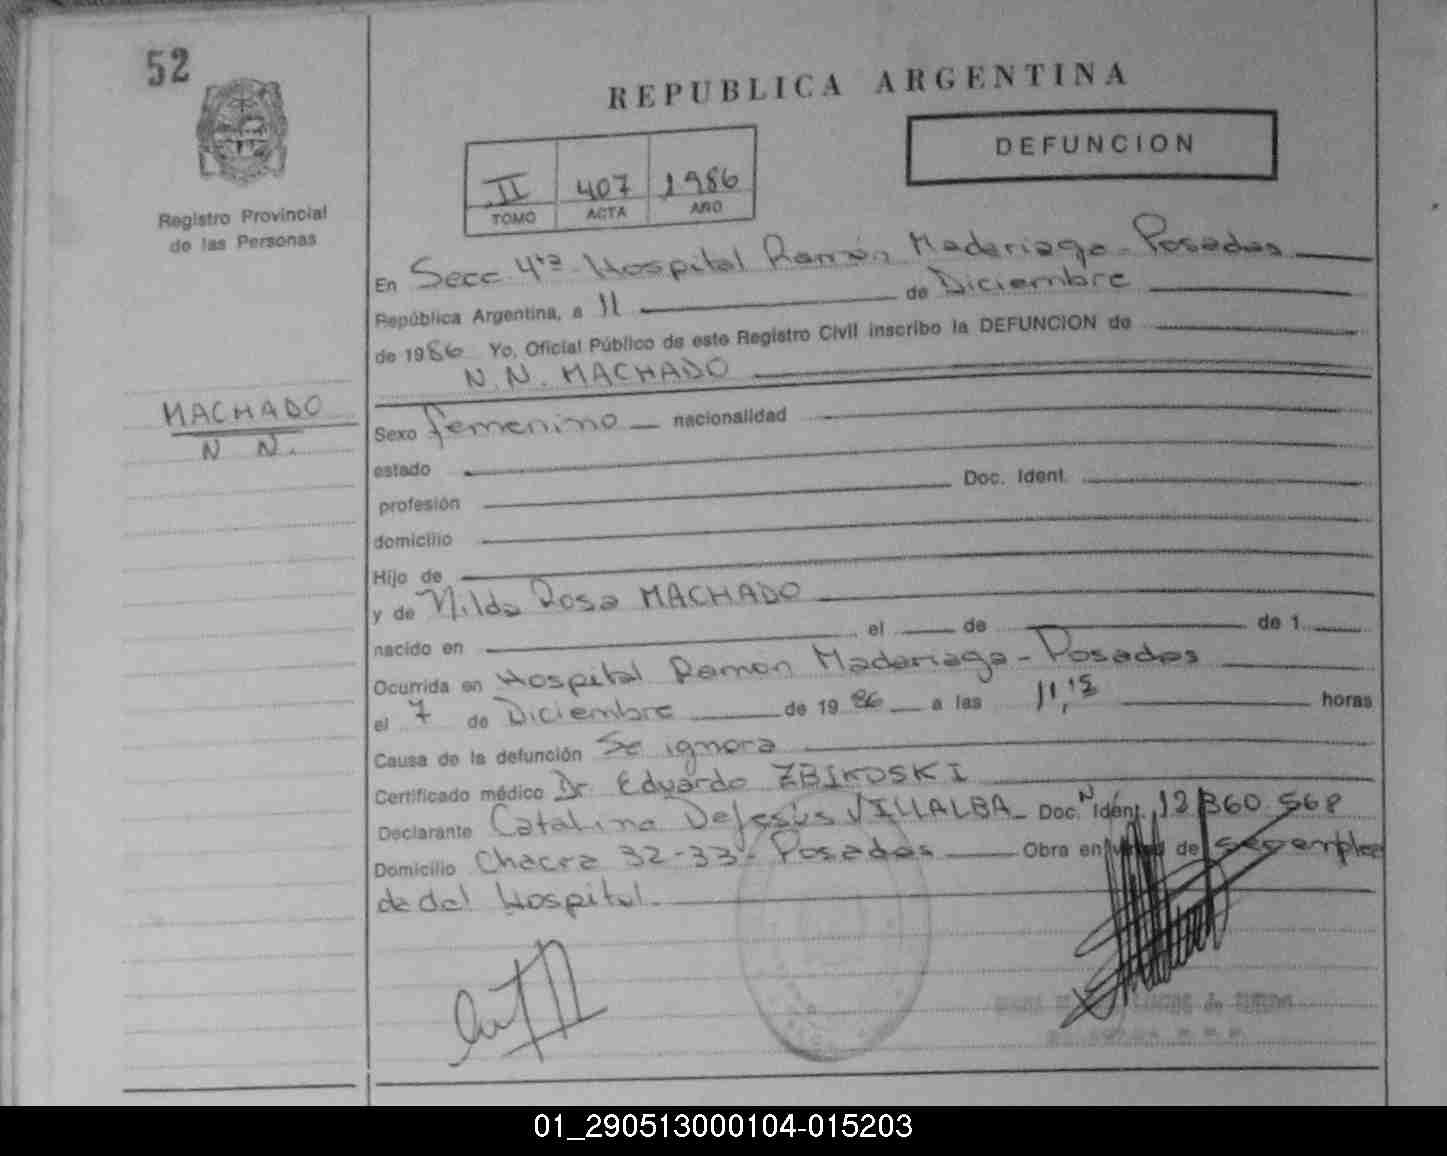 52
REPUBLICA ARGENTINA
DEFUNCION
II 407 1986
TOMO ACTA AÑO
Registro Provincial
de las Personas
En Secc 4ta Hospital Ramón Madariaga - Posadas
República Argentina, a 11 de Diciembre
de 1986 Yo, Oficial Público de este Registro Civil inscribo la DEFUNCION de
N. N. MACHADO
MACHADO
N N.
Sexo femenino nacionalidad
estado
profesión Doc. Ident.
domicilio
Hijo de
y de Nilda Rosa MACHADO
nacido en el de de 1
Ocurrida en Hospital Ramon Madariaga - Posadas
el 7 de Diciembre de 1986 a las 11,15 horas
Causa de la defunción Se ignora
Certificado médico Dr. Eduardo ZBIKOSKI
Declarante Catalina DeJesús VILLALBA - Doc. N Ident. 12 360 568
Domicilio Chacra 32-33- Posadas Obra en de ser emplea
da del Hospital.
01_290513000104-015203